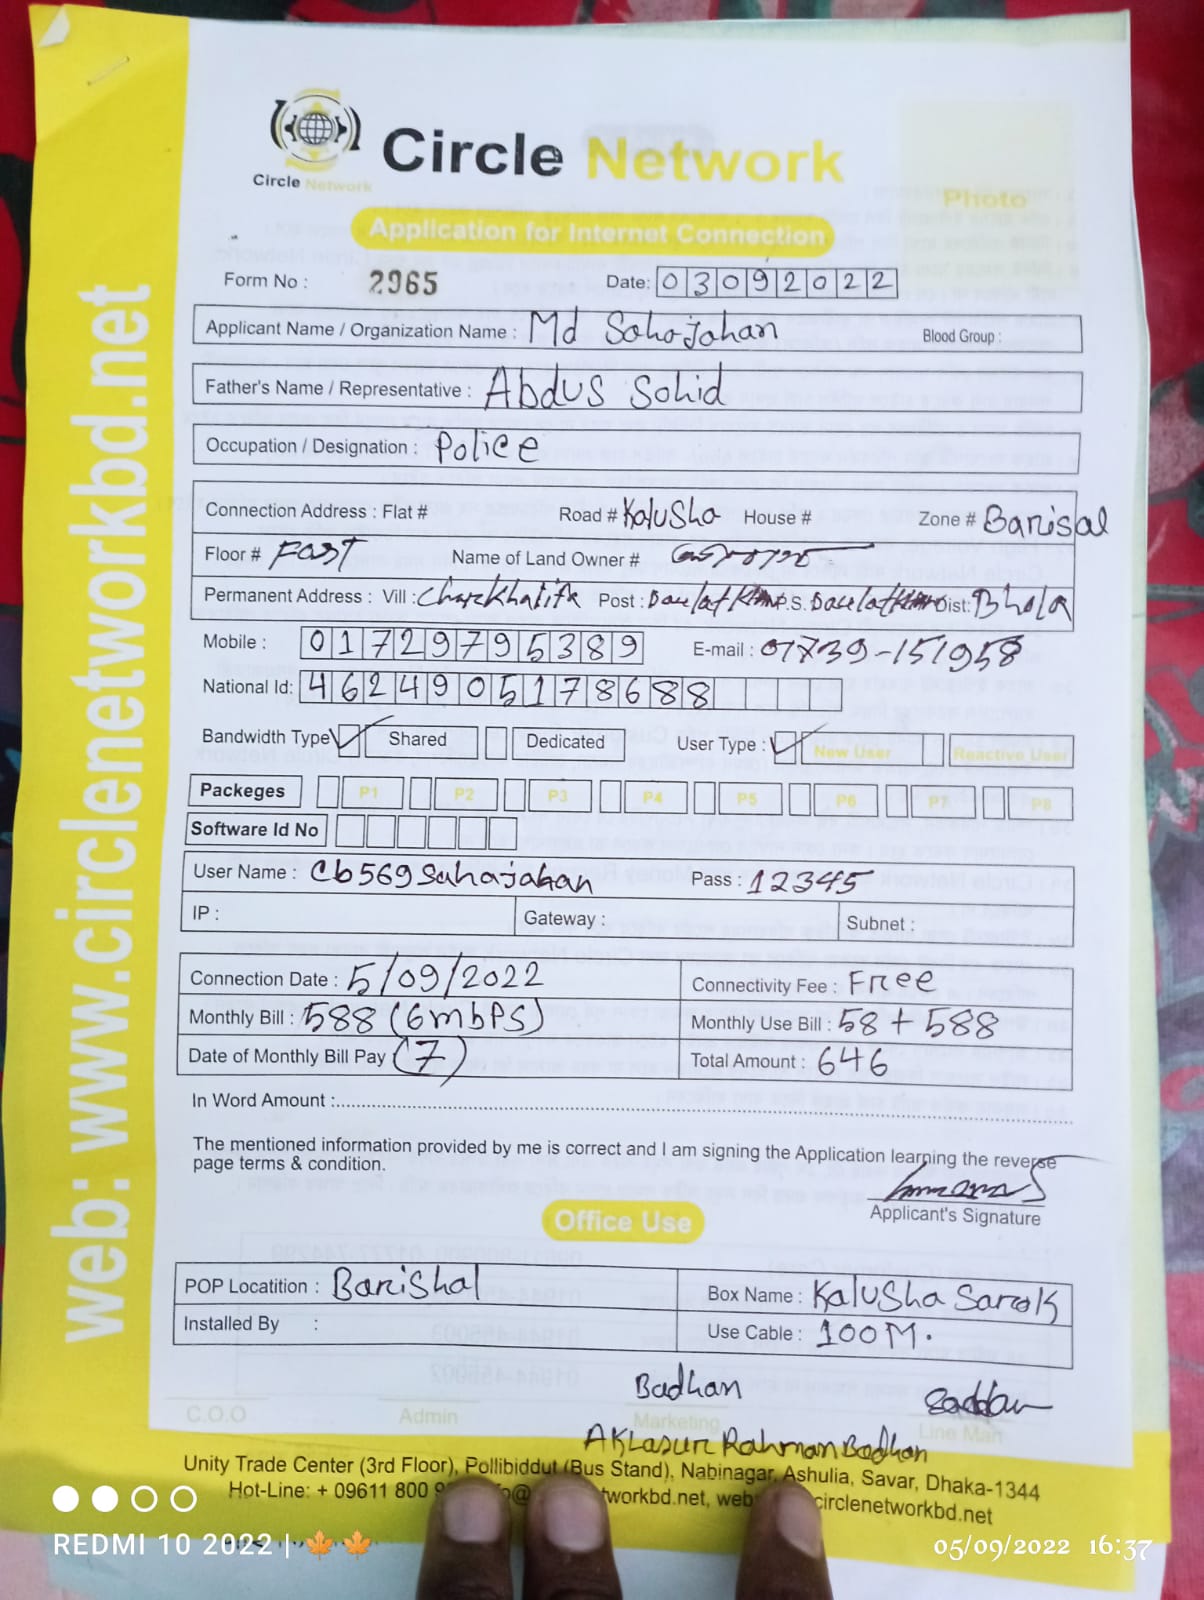 web: www.circlenetworkbd.net
Circle Network
Circle Network
Photo
Application for Internet Connection
Form No : 2965 Date: 03092022
Applicant Name / Organization Name : Md Sohajahan Blood Group :
Father's Name / Representative : Abdus Sohid
Occupation / Designation : Police
Connection Address : Flat # Road # Kalusha House # Zone # Barisal
Floor # FAST Name of Land Owner #
Permanent Address : Vill : Charkhalifa Post : Daulatkhan P.S. Daulatkhan Dist: Bhola
Mobile : 01729795389 E-mail : 01739-151958
National Id: 4624905178688
Bandwidth Type Shared Dedicated User Type : New User Reactive User
Packeges P1 P2 P3 P4 P5 P6 P7 P8
Software Id No
User Name : cb569sahajahan Pass : 12345
IP : Gateway : Subnet :
Connection Date : 5/09/2022 Connectivity Fee : Free
Monthly Bill : 588 (6mbPS) Monthly Use Bill : 58 + 588
Date of Monthly Bill Pay (7) Total Amount : 646
In Word Amount :
The mentioned information provided by me is correct and I am signing the Application learning the reverse
page terms & condition.
Applicant's Signature
Office Use
POP Locatition : Barishal Box Name : Kalusha Sarok
Installed By : Use Cable : 100M.
Badhan Saddam
C.O.O Admin Marketing Line Man
AKLasur Rahman Badhan
Unity Trade Center (3rd Floor), Pollibiddut (Bus Stand), Nabinagar, Ashulia, Savar, Dhaka-1344
Hot-Line: + 09611 800 tworkbd.net, web circlenetworkbd.net
REDMI 10 2022 | 05/09/2022 16:37